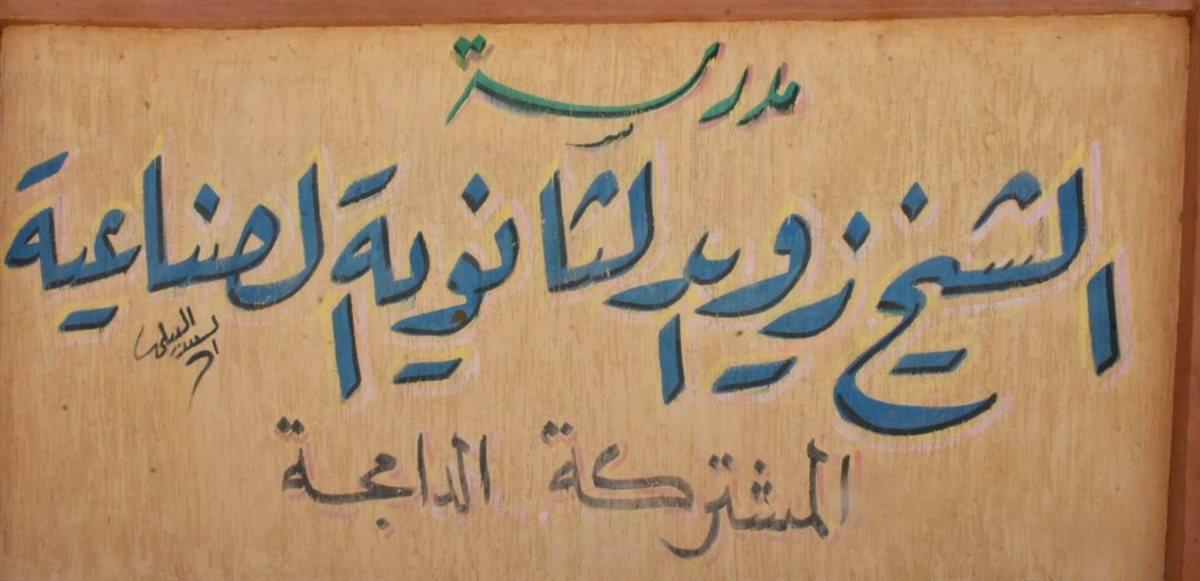 مدرسة
الشيخ زويد الثانوية الصناعية
المشتركة .. الدامجة